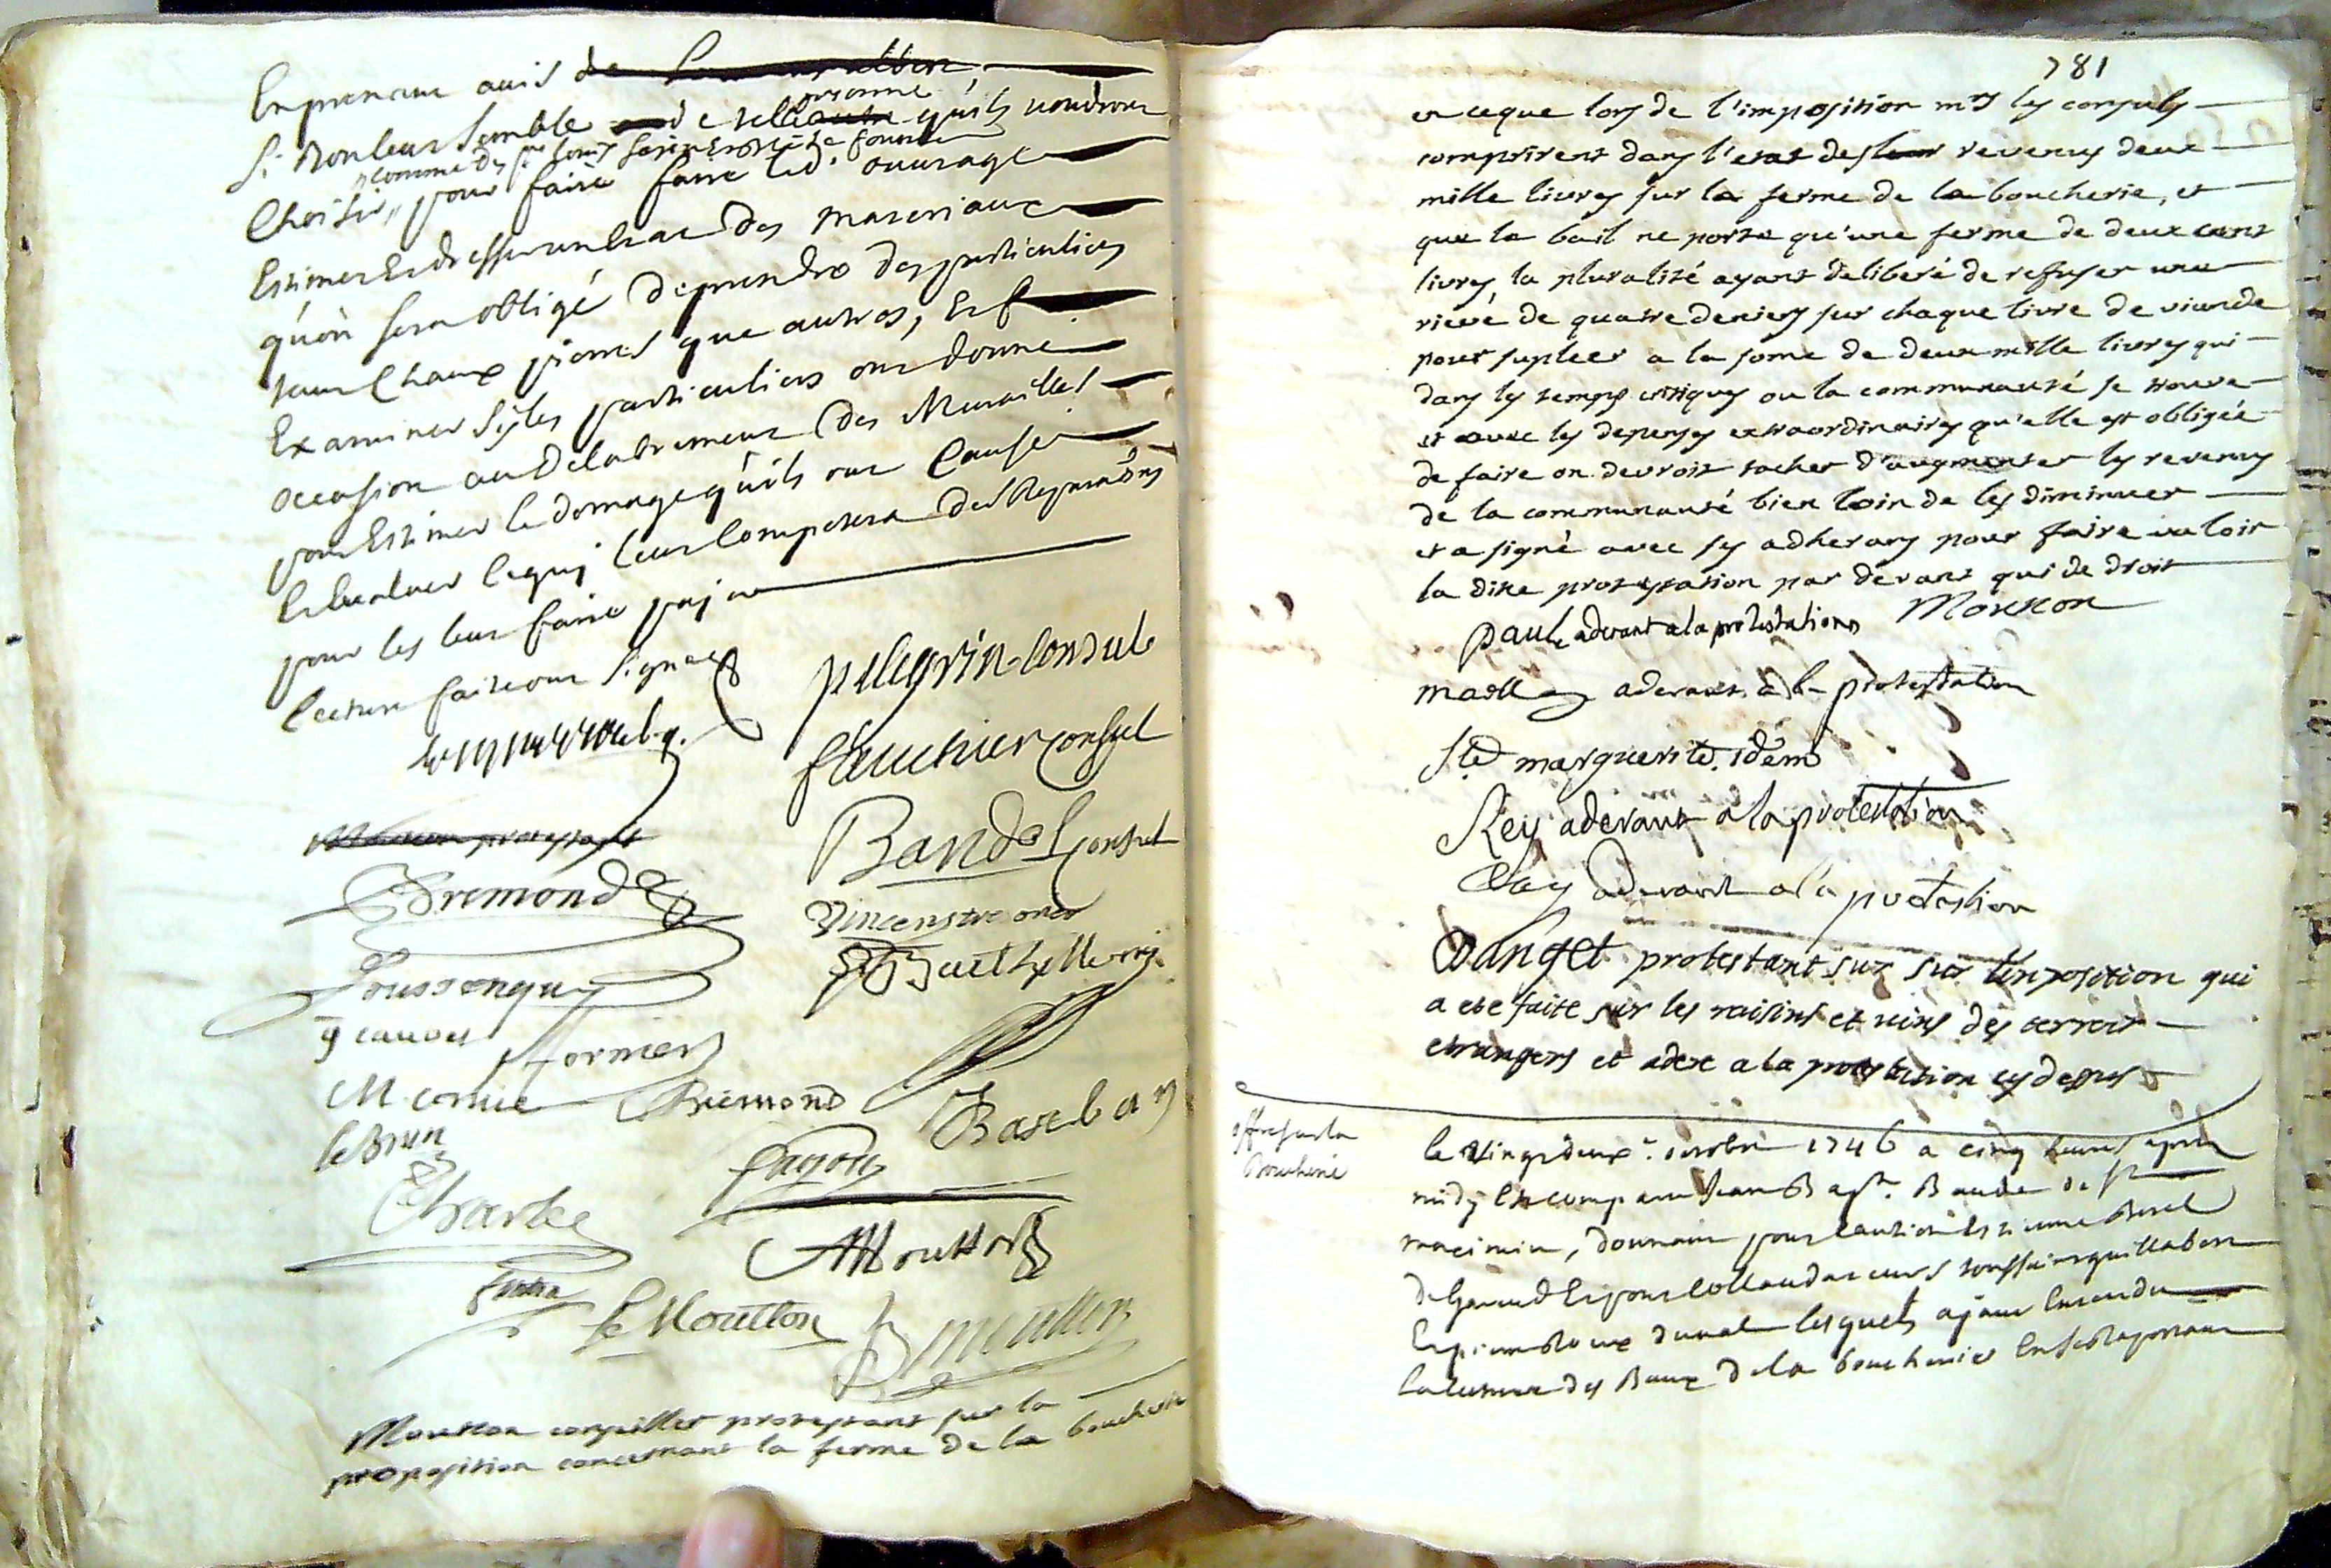 En prenant avis de
Si bon leur semble de telle personne qu'ils voudront
Choisir, pour faire faire led. ouvrage
Estimer Et dresser un Etat des materiaux
qu'on sera obligé de prendre des particuliers
tant Chaux pierres que autres, Et
Examiner si les particuliers ont donné
occasion au delabrement des Murailles
pour Estimer le domage qu'ils ont Causé
Et Evaluer ce qui leur Competera des Reparaõns
pour les leur faire payer
lecture faite ont signé
pelegrin Consul
fauchier Consul
Bandol Consul
Bremond
Toussenquy
fornier
Bremond
lebrun
Charles
AMoutton
le Moutton
Moutton
Moutton conseiller protestant sur la
proposition concernant la ferme de la boucherie
781
en ce que lors de l'imposition mrs les consuls
comprirent dans l'etat des revenus deux
mille livres sur la ferme de la boucherie, et
que le bail ne porte qu'une ferme de deux cent
livres, la pluralité ayant deliberé de refuser une
rieve de quatre deniers sur chaque livre de viande
pour supleer a la some de deux mille livres qui
dans les temps critiques ou la communauté se trouve
et avec les depenses extraordinaires qu'elle est obligée
de faire on devroit tacher d'augmenter les revenus
de la communauté bien loin de les diminuer
et a signé avec ses adherans pour faire valoir
la dite protestation par devant qui de droit
Moutton
paul aderant a la protestation
aderant a la protestation
Ste marguerite idem
Rey aderant a la protestation
aderant a la protestation
Danget protestant sur sur l'imposition qui
a ete faite sur les raisins et vins des terroir
etrangers et adere a la protestation cy dessus
offre sur la
Boucherie
le vingt deux e. octobre 1746 a cinq heures apres
midy Est comparu Jean Bapte. Baude de St
maximin, donnant pour caution Estienne
Et pour Collaudateurs toussaint guillabert
Et pierre Roux duval lesquels ayant Entendu
la lecture des Baux de la boucherie En se Raportant